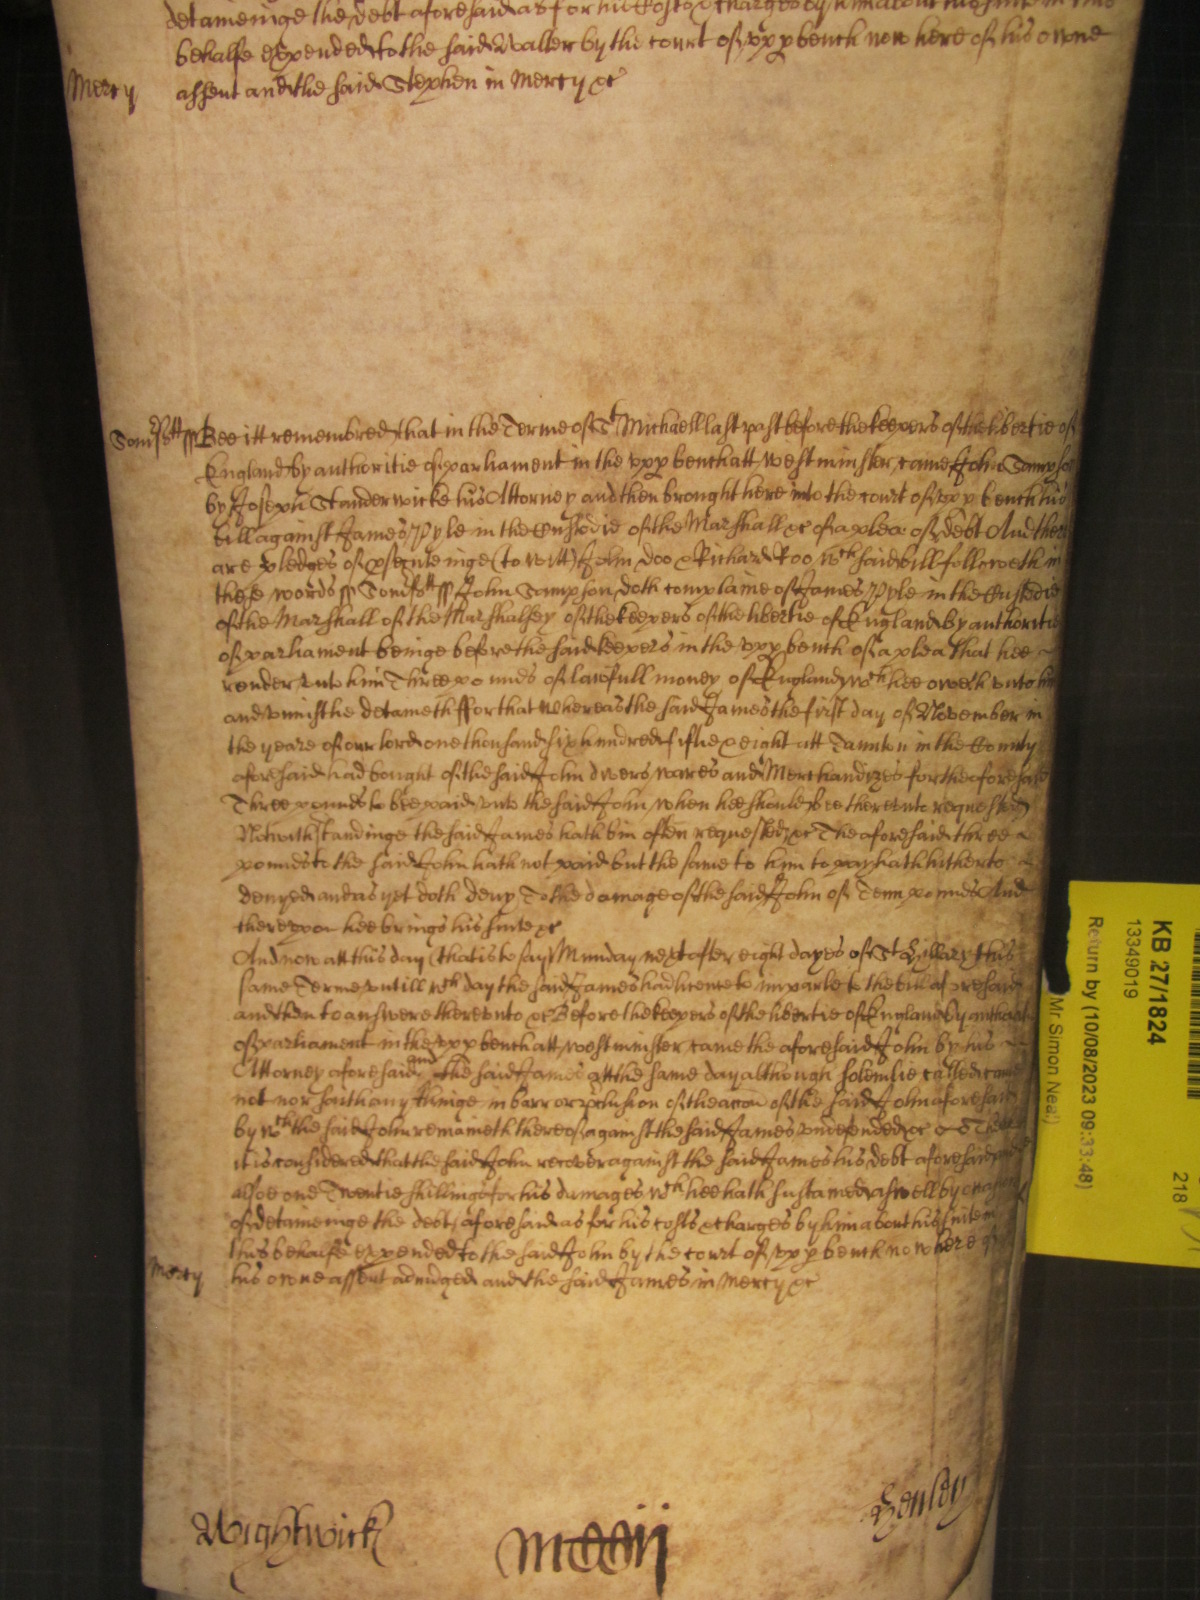 detaineinge the debt aforesaid as for his Costs & charges by him about his suite in this
behalfe expended to the said Walter by the court of vpp bench now here of his owne
Mercy assent and the said Stephen in Mercy &c
Somsett ss Bee itt remembred that in the Terme of St Michaell last past before the keepers of the libertie of
England by authoritie of parliament in the vpp bench att westminster came John Sampson
by Joseph Standerwicke his Attorney and then brought here into the court of vpp bench his
bill against James Pyle in the Custodie of the Marshall &c of a plea of debt And there
are pledges of prsecuteinge (to witt) John Doo & Richard Roo wch said bill followeth in
these words ss Somsett ss John Sampson doth complaine of James Pyle in the Custodie
of the Marshall of the Marshalsey of the keepers of the libertie of England by authoritie
of parliament beinge before the said keepers in the vpp bench of a plea that hee
render vnto him Three pounds of lawfull money of England wch hee oweth vnto him
and vniustlie detaineth ffor that whereas the said James the first day of November in
the yeare of our lord one thousand six hundred fiftie & eight att Taunton in the County
aforesaid had bought of the said John divers wares and Merchandizes for the aforesaid
Three pounds to bee paid vnto the said John when hee should bee therevnto requested
Notwithstandinge the said James hath bin often requested &c The aforesaid three
pounds to the said John hath not paid but the same to him to pay hath hitherto
denyed and as yet doth deny To the damage of the said John of Tenn pounds And
therevpon hee brings his suite &c
And now att this day (that is to say) Munday next after eight dayes of St Hillary this
same Terme vntill wch day the said James had licence to imparle to the bill aforesaid
and then to answere therevnto &c Before the keepers of the libertie of England by authoritie
of parliament in the vpp bench att westminster came the aforesaid John by his
Attorney aforesaid and the said James att the same day although solemlie called came
not nor saith any thinge in barr or prclusion of the accon of the said John aforesaid
by wch the said John remaineth thereof against the said James vndefended &c Therefore
it is considered that the said John recover against the said James his debt aforesaid and
alsoe one Twentie shillings for his damages wch hee hath sustained aswell by occasion
of detaineinge the debt aforesaid as for his costs & charges by him about his suite in
this behalfe expended to the said John by the court of vpp bench now here of
Mercy his owne assent adiudged and the said James in Mercy &c
Wightwick
Henley
KB 27/1824
13349019
Return by (10/08/2023 09:33:48)
Mr Simon Neal)
218